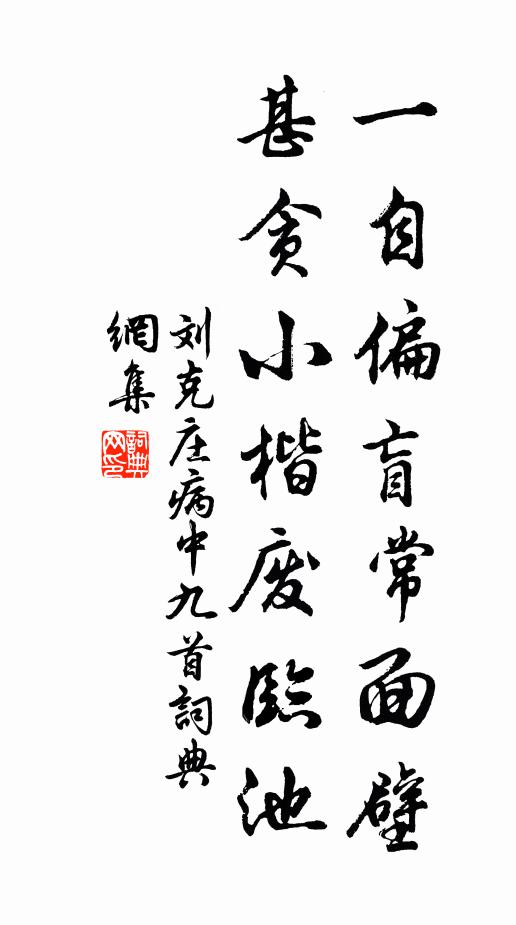 一自偏盲常面壁
甚贪小楷废臨池
刘克庄病中九首詞典
網集
詞典网印